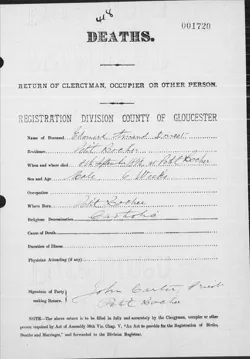 418
001720
DEATHS.
RETURN OF CLERGYMAN, OCCUPIER OR OTHER PERSON.
REGISTRATION DIVISION COUNTY OF GLOUCESTER
Name of Deceased Edouard
Residence Petit Rocher
When and where died September at Petit Rocher
Sex and Age Male 6 Weeks
Occupation
Where Born Petit Rocher
Religious Denomination Catholic
Cause of Death
Duration of Illness
Physician Attending (if any)
Signature of Party making Return. John Carter Priest
Petit Rocher
NOTE.—The above return to be filled in fully and accurately by the Clergyman, occupier or other
person required by Act of Assembly 50th Vic. Chap. V, "An Act to provide for the Registration of Births,
Deaths and Marriages," and forwarded to the Division Registrar.